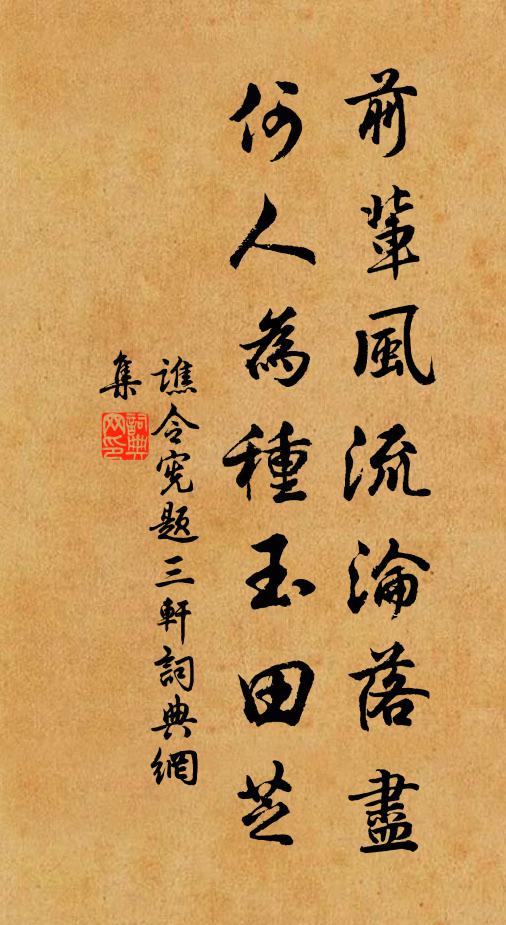 前輩風流淪落盡
何人為種玉田芝
譙令憲題三軒詞典網
集
詞典網印